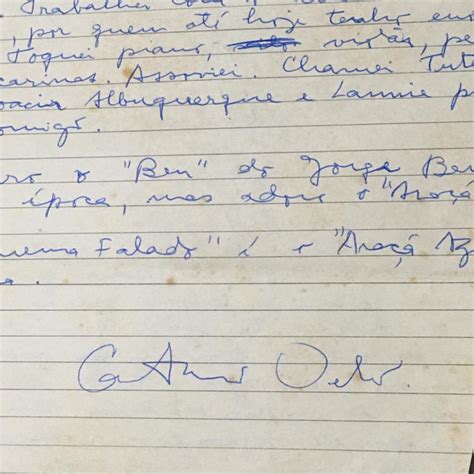 . Trabalhei com o
, por quem até hoje tenho
Toquei piano, violão, pe
carinas. Assoviei. Chamei Tut
oacir Albuquerque e Lannie p
omigo.
ro o "Ben" do Jorge Ben
época, mas adoro o "Araçá
nema Falado" é o "Araçá Az
Caetano Veloso.